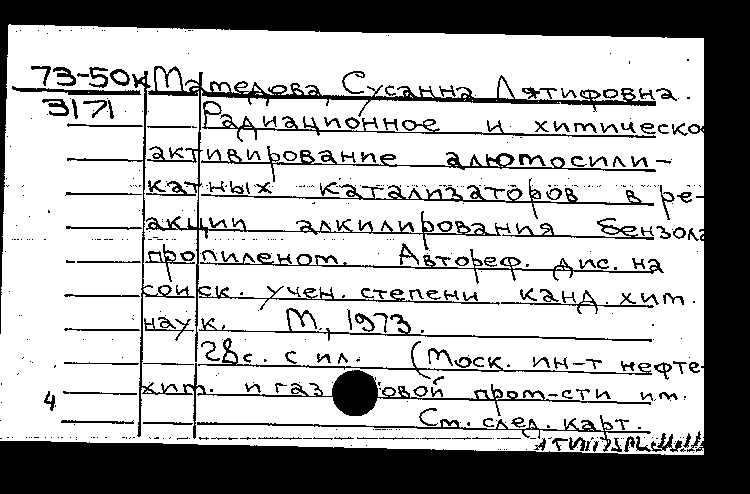 73-50к Мамедова, Сусанна Лятифовна.
3171
Радиационное и химическо
активирование алюмосили-
катных катализаторов в ре-
акции алкилирования бензола
пропиленом. Автореф. дис. на
соиск. учен. степени канд. хим.
наук. М., 1973.
28 с. с ил. (Моск. ин-т нефте-
хим. и газ овой пром-сти им.
4
См. след. карт.